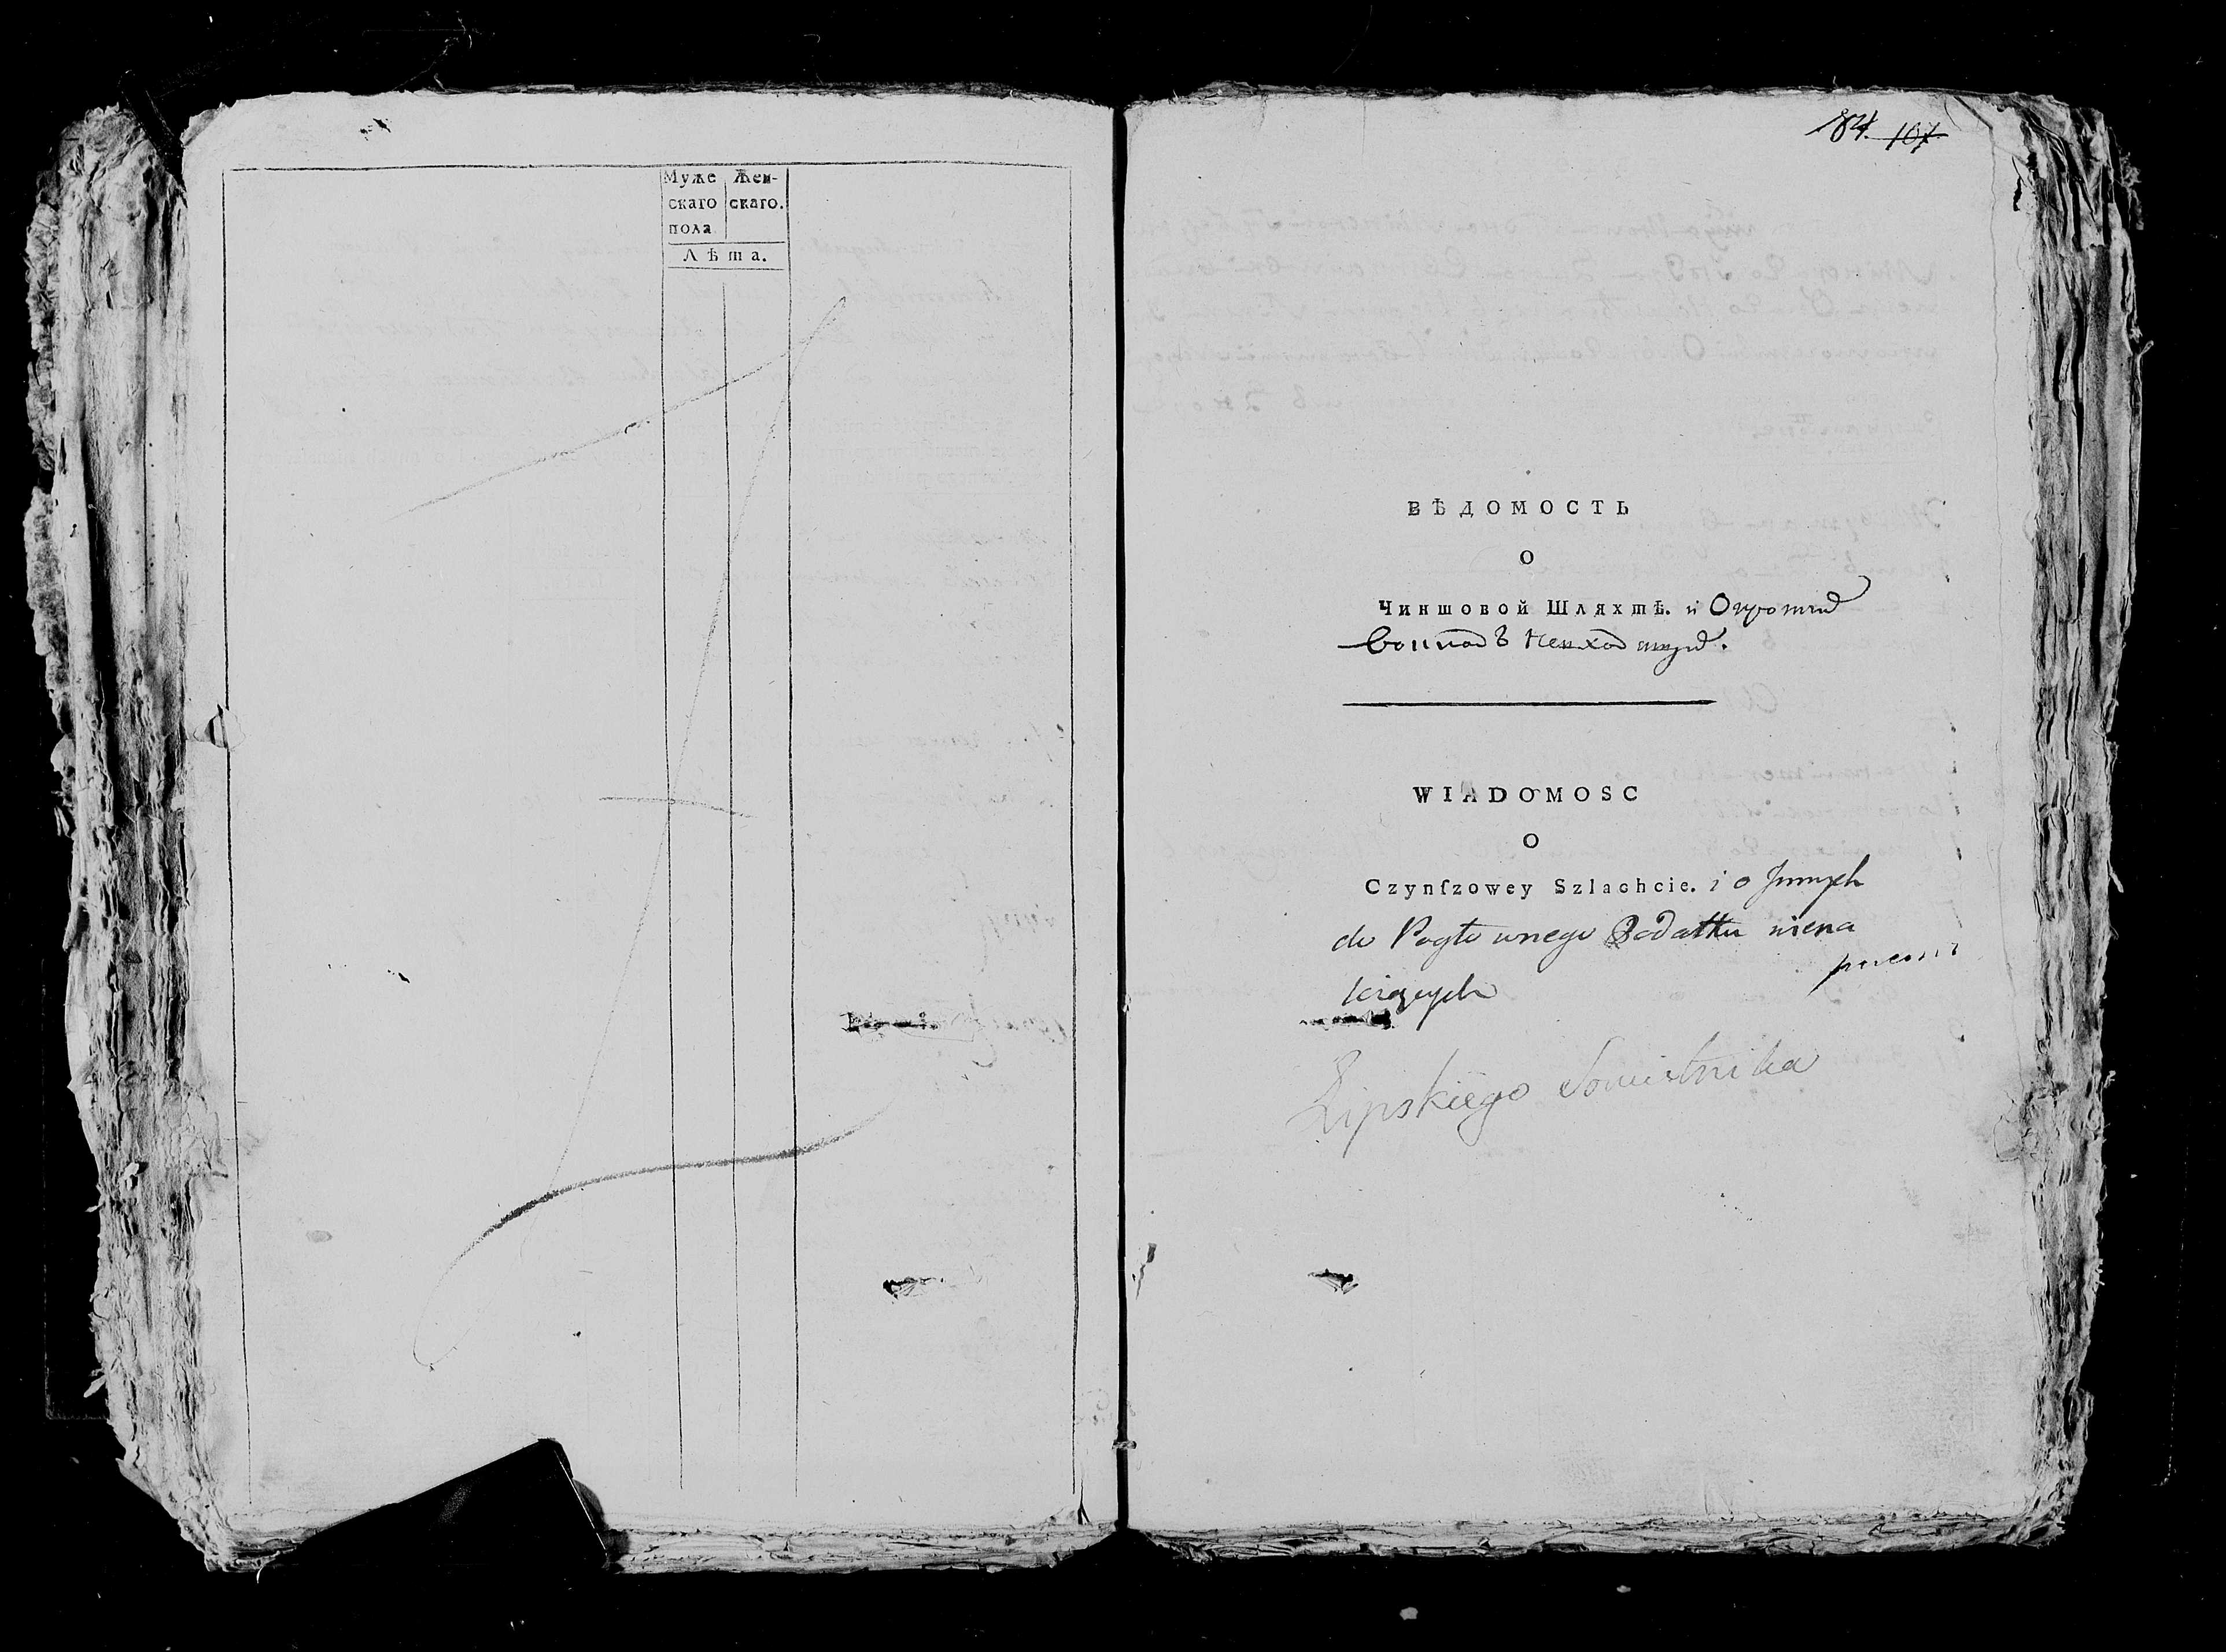 Муже Жен-
скаго скаго.
пола
Лѣта.
84. 107
ВѢДОМОСТЬ
О
Чиншовой Шляхтѣ. и О
WIADOMOSC
O
Czynſzowey Szlachcie. i o Jnnych
do Pogłownego Podatku niena
leżących
Lipskiego Sowietnika